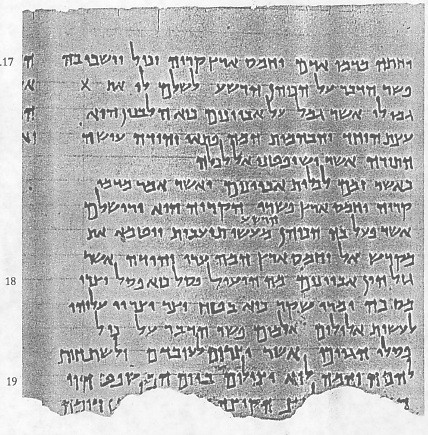 17 יחתה מדמי אדם וחמס ארץ קריה וכול יושבי בה
פשר הדבר על הכוהן הרשע לשלם לו את X
גמולו אשר גמל על אביונים כיא הלבנון הוא
עצת היחד והבהמות המה פתאי יהודה עושה
התורה אשר ישופטנו אל לכלה
כאשר זמם לכלות אביונים ואשר אמר מדמי
קריה וחמס ארץ פשרו הקריה היא ירושלם
הרשע
אשר פעל בה הכוהן מעשי תועבות ויטמא את
מקדש אל וחמס ארץ המה ערי יהודה אשר
18 גזל הון אביונים מה הועיל פסל כיא פסל יצרו
מסיכה ומרי שקר כיא בטח יצר יצריו עליהו
לעשות אלילים אלמים פשר הדבר על כול
פסלי הגוים אשר יצרום לעובדם ולשתחות
19 להמה והמה לוא יצילום ביום המשפט הוי